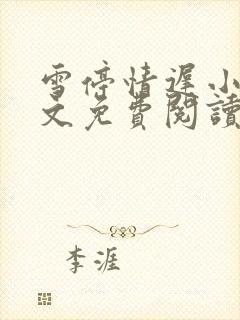 雪停情遲小
文免費閱讀
李涯